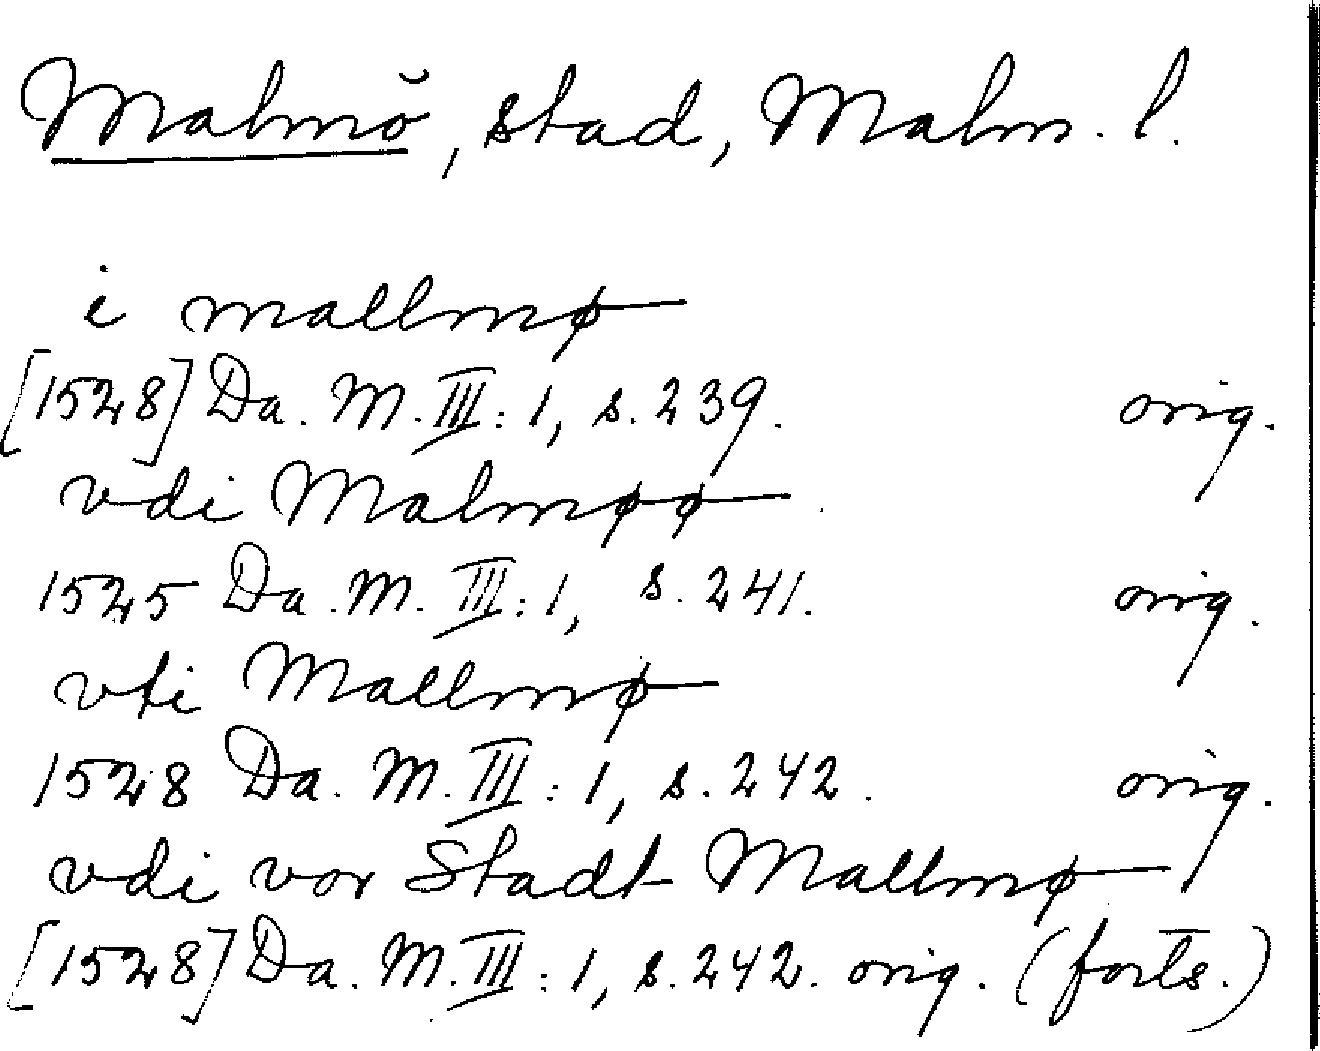 Malmö, stad, Malm. l.
i mallmø
[1528] Da. M. III: 1, s. 239. orig.
vdi Malmøø
1525 Da. M. III: 1, s. 241. orig.
vti Mallmø
1528 Da. M. III: 1, s. 242. orig.
vdi vor Stadt Mallmø
[1528] Da. M. III: 1, s. 242. orig. (forts.)